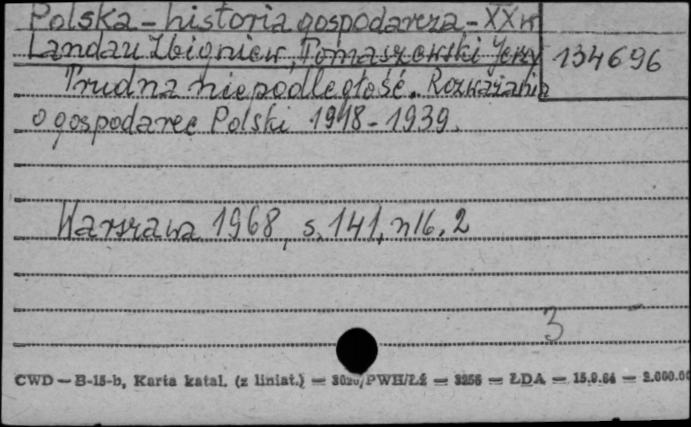 Polska - historia gospodarcza - XX w
Landau Zbigniew, Tomaszewski Jerzy 134696
Trudna niepodległość. Rozważania
o gospodarce Polski 1918-1939.
Warszawa 1968, s. 141, nlb. 2
3
CWD — B-15-b, Karta katal. (z liniat.) — PWH/Łź — 3256 — ŁDA — 15.9.64 — 2.000.00